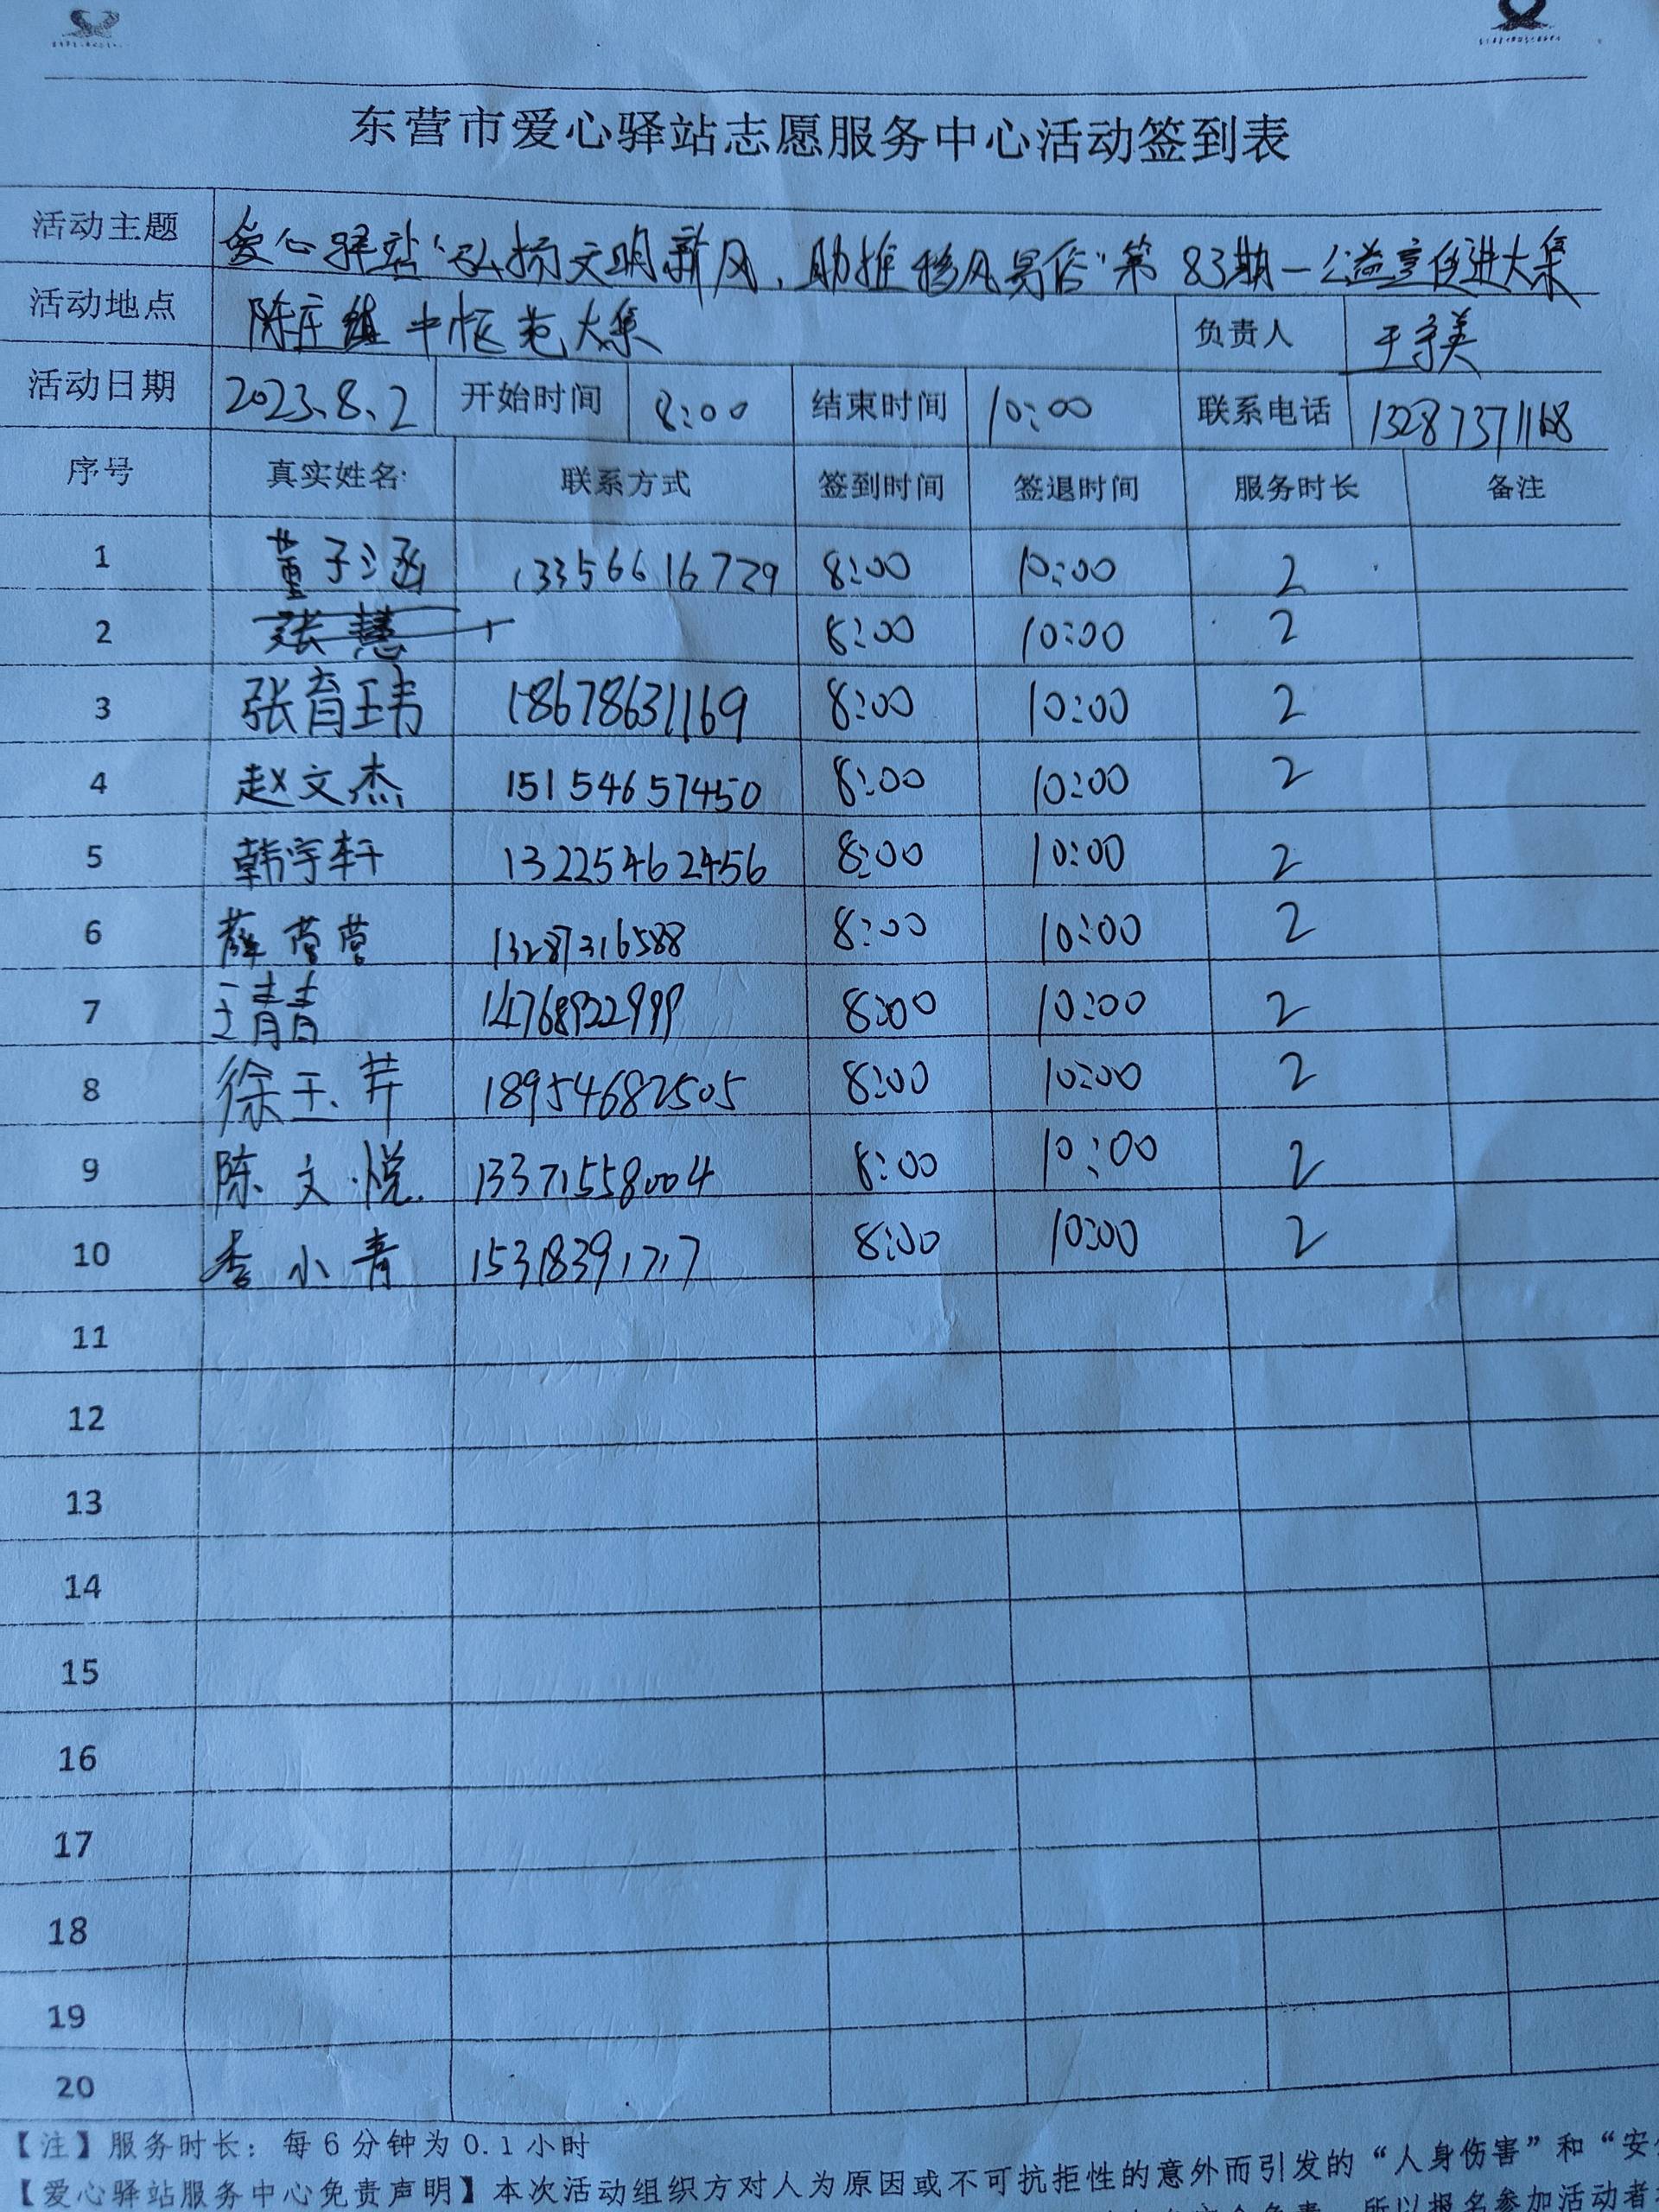 东营市爱心驿站志愿服务中心活动签到表
活动主题 爱心驿站“弘扬文明新风，助推移风易俗”第83期—公益宣传进大集
活动地点 陈庄镇中 大集 负责人 王字美
活动日期 2023.8.2 开始时间 8:00 结束时间 10:00 联系电话 13287371168
序号 真实姓名: 联系方式 签到时间 签退时间 服务时长 备注
1 董子涵 13356616729 8:00 10:00 2
2 张慧 8:00 10:00 2
3 张育玮 18678631169 8:00 10:00 2
4 赵文杰 15154657450 8:00 10:00 2
5 韩宇轩 13225462456 8:00 10:00 2
6 薛营营 13287316588 8:00 10:00 2
7 王青青 14768922999 8:00 10:00 2
8 徐玉芹 18954682505 8:00 10:00 2
9 陈文悦 13371558004 8:00 10:00 2
10 李小青 15318391717 8:00 10:00 2
11
12
13
14
15
16
17
18
19
20
【注】服务时长：每6分钟为0.1小时
【爱心驿站服务中心免责声明】本次活动组织方对人为原因或不可抗拒性的意外而引发的“人身伤害”和“安
所以报名参加活动者